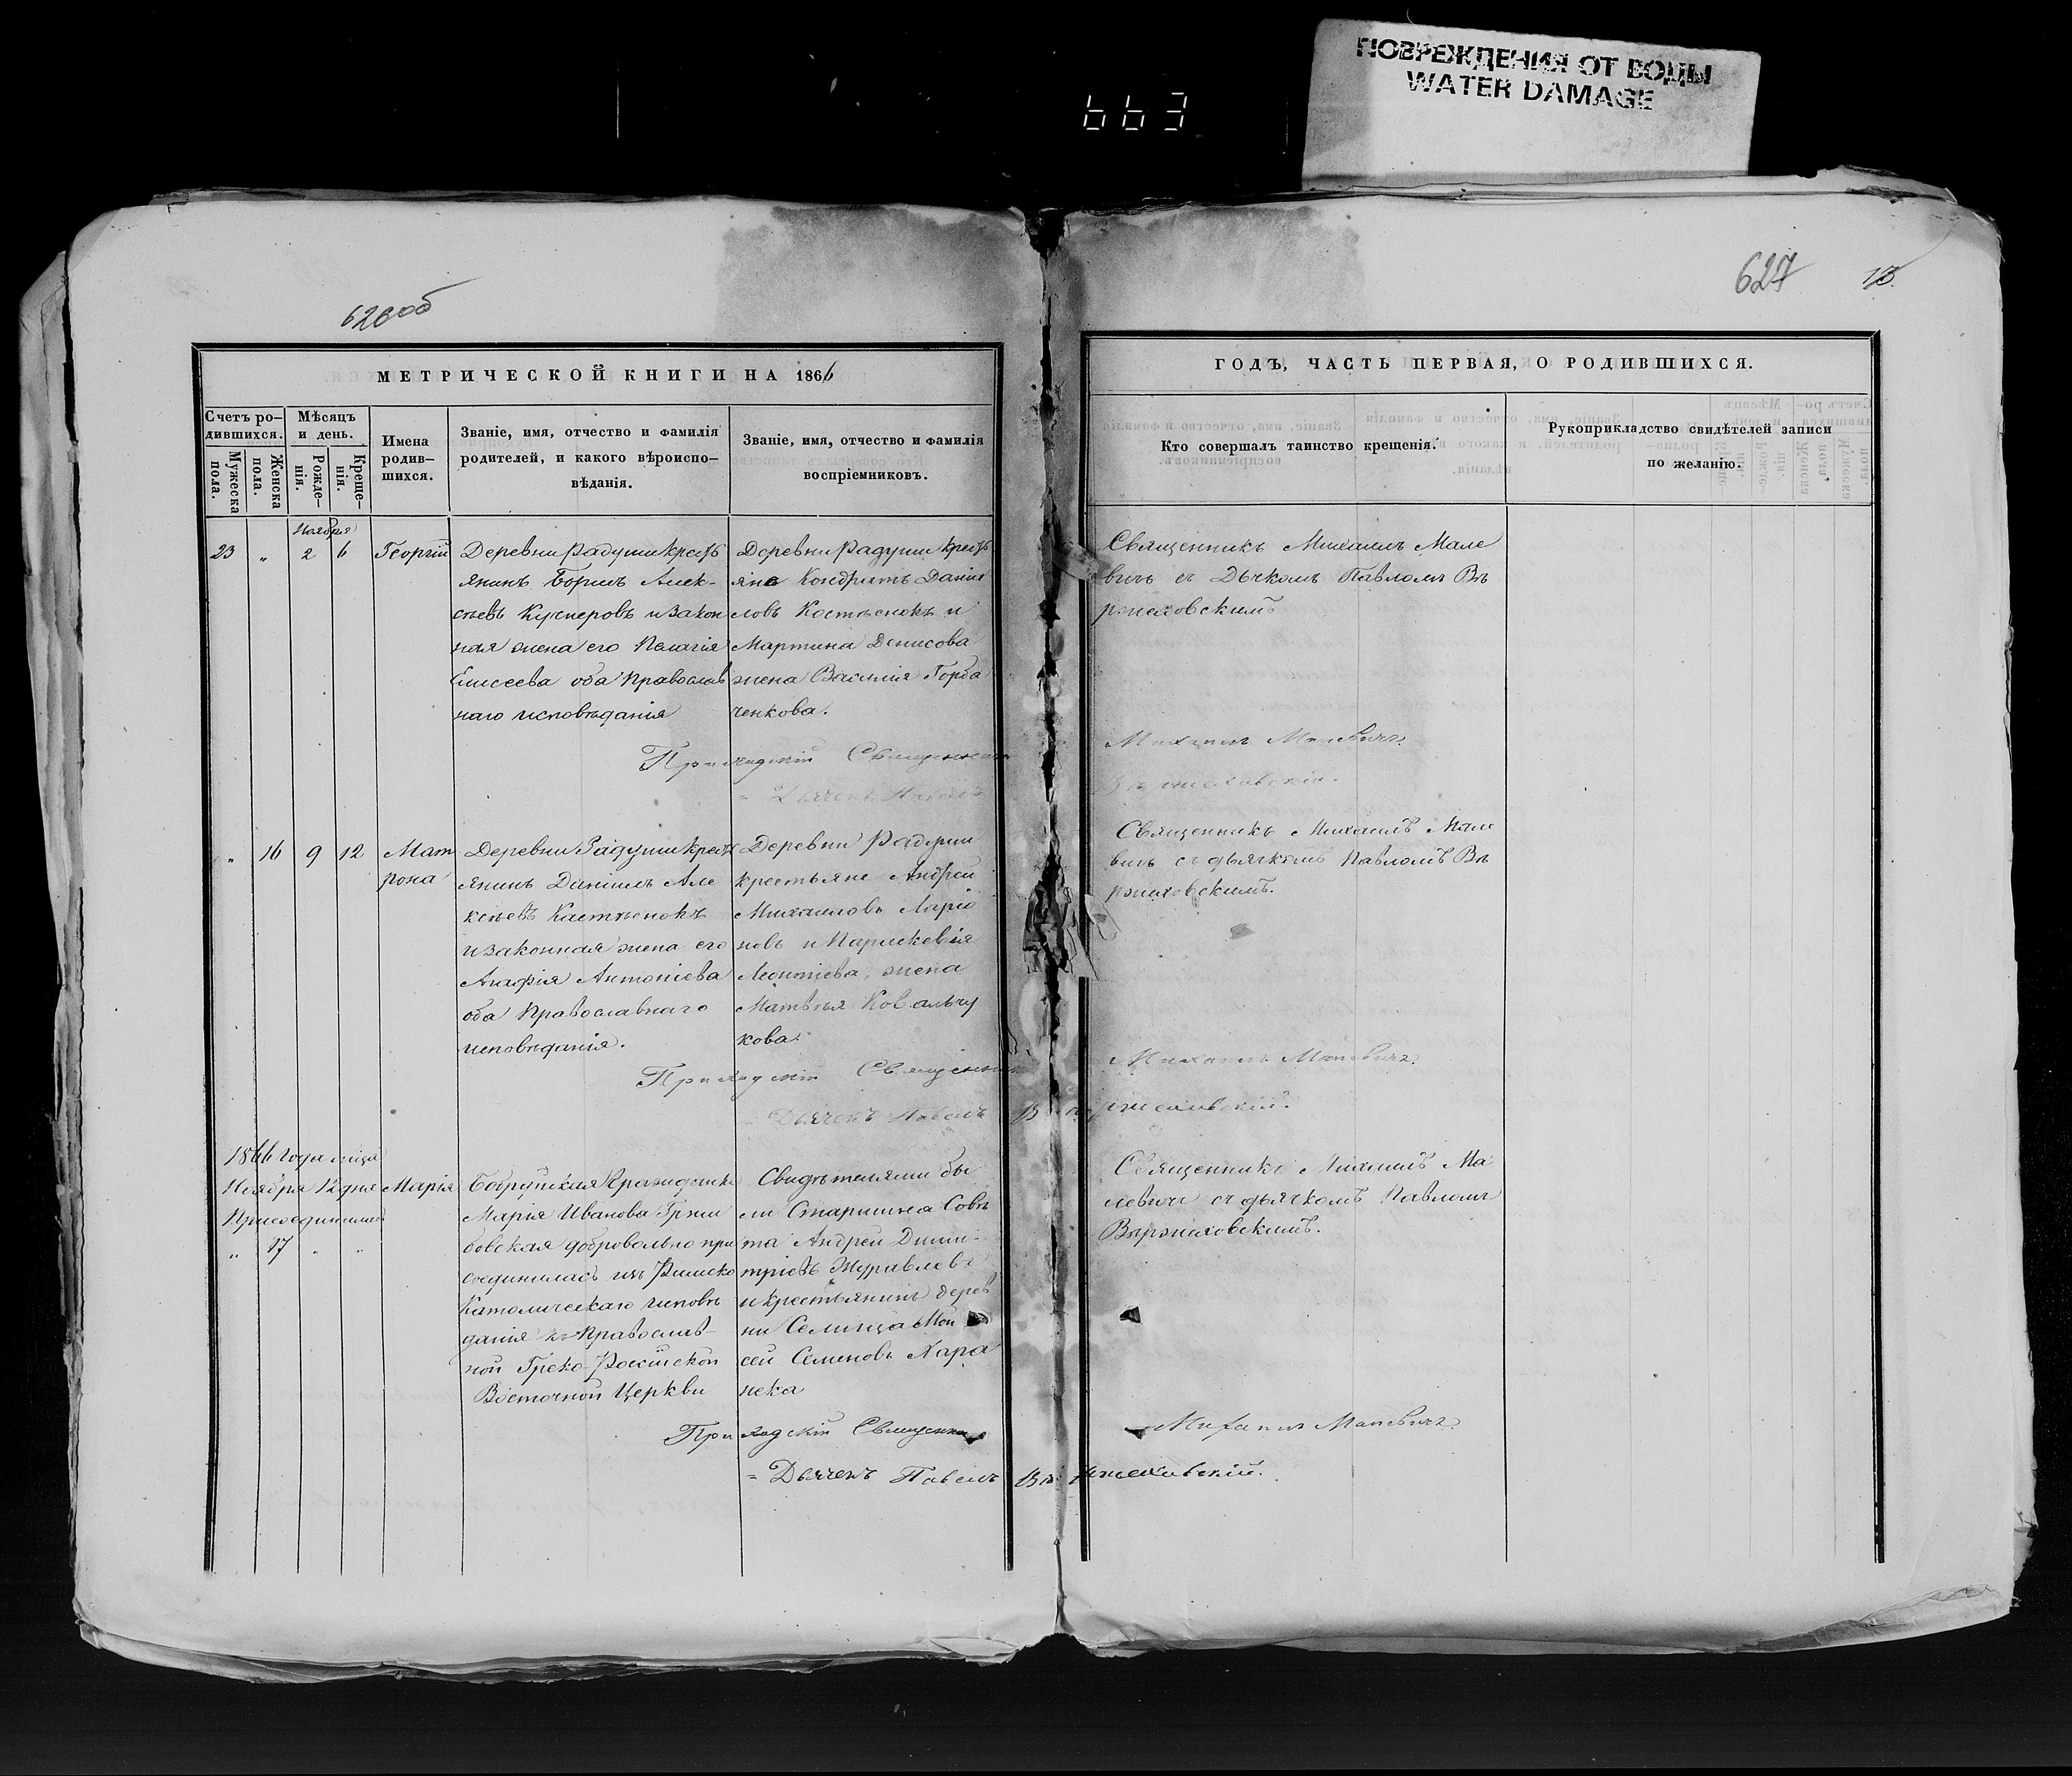 ПОВРЕЖДЕНИЯ ОТ ВОДЫ
WATER DAMAGE
663
626об
627
13.
МЕТРИЧЕСКОЙ КНИГИ НА 1866
Счетъ ро-
дившихся.
Мужеска
пола.
Женска
пола.
Мѣсяцъ
и день.
Рожде-
нія.
Креще-
нія.
Имена
родив-
шихся.
Званіе, имя, отчество и фамилія
родителей, и какого вѣроиспо-
вѣданія.
Званіе, имя, отчество и фамилія
воспріемниковъ.
ГОДЪ, ЧАСТЬ ПЕРВАЯ, О РОДИВШИХСЯ.
Кто совершалъ таинство крещенія.
Рукоприкладство свидѣтелей записи
по желанію.
Ноября
23 „ 2 6 Георгій
Деревни Радуши крест
янинъ Борисъ Алек-
сѣевъ Кучеровъ и закон
ная жена его Пелагія
Елисеева оба православ
наго исповѣданія
Деревни Радуши крест
яне Кондратъ Даніи
ловъ Костѣнокъ и
Мартина Денисова
жена Василія Горба
ченкова.
Священникъ Михаилъ Мале
вичъ съ Дьчкомъ Павломъ Въ
ржеховскимъ
Приходскій Священникъ Михаилъ Малевичъ.
= Дьячекъ Павелъ Вържеховскій.
„ 16 9 12 Мат
рона
Деревни Радуши крест
янинъ Даніилъ Але
ксѣевъ Костѣнокъ
и законная жена его
Агафія Антоніева
оба Православнаго
исповѣданія.
Деревни Радуши
крестьяне Андрей
Михаиловъ Ларіо
новъ и Параскевія
Леонтіева, жена
Матвѣя Ковальчу
кова.
Священникъ Михаилъ Мале
вичъ съ дьячкомъ Павломъ Въ
ржеховскимъ.
Приходскій Священникъ Михаилъ Малевичъ.
Дьячекъ Павелъ Вържеховскій.
1866 года мѣца
Ноября 12 дня
Присоединилась
„ 17 „ „
Марія
Бобруйская Гражданка
Марія Иванова
бовская добровольно при
соединилась изъ Римско
Католическаго исповѣ
данія къ Православ-
ной Греко-Россійской
Восточной Церкви
Свидѣтелями бы
ли Старшина Совѣ
та Андрей Дими-
тріевъ Журавлевъ
и крестьянинъ дерев
ни Селища Мои
сей Семеновъ Хара
нека
Священникъ Михаилъ Ма
левичъ съ дьячкомъ Павломъ
Вържеховскимъ.
Приходскій Священникъ Михаилъ Малевичъ.
= Дьячекъ Павелъ Вържеховскій.